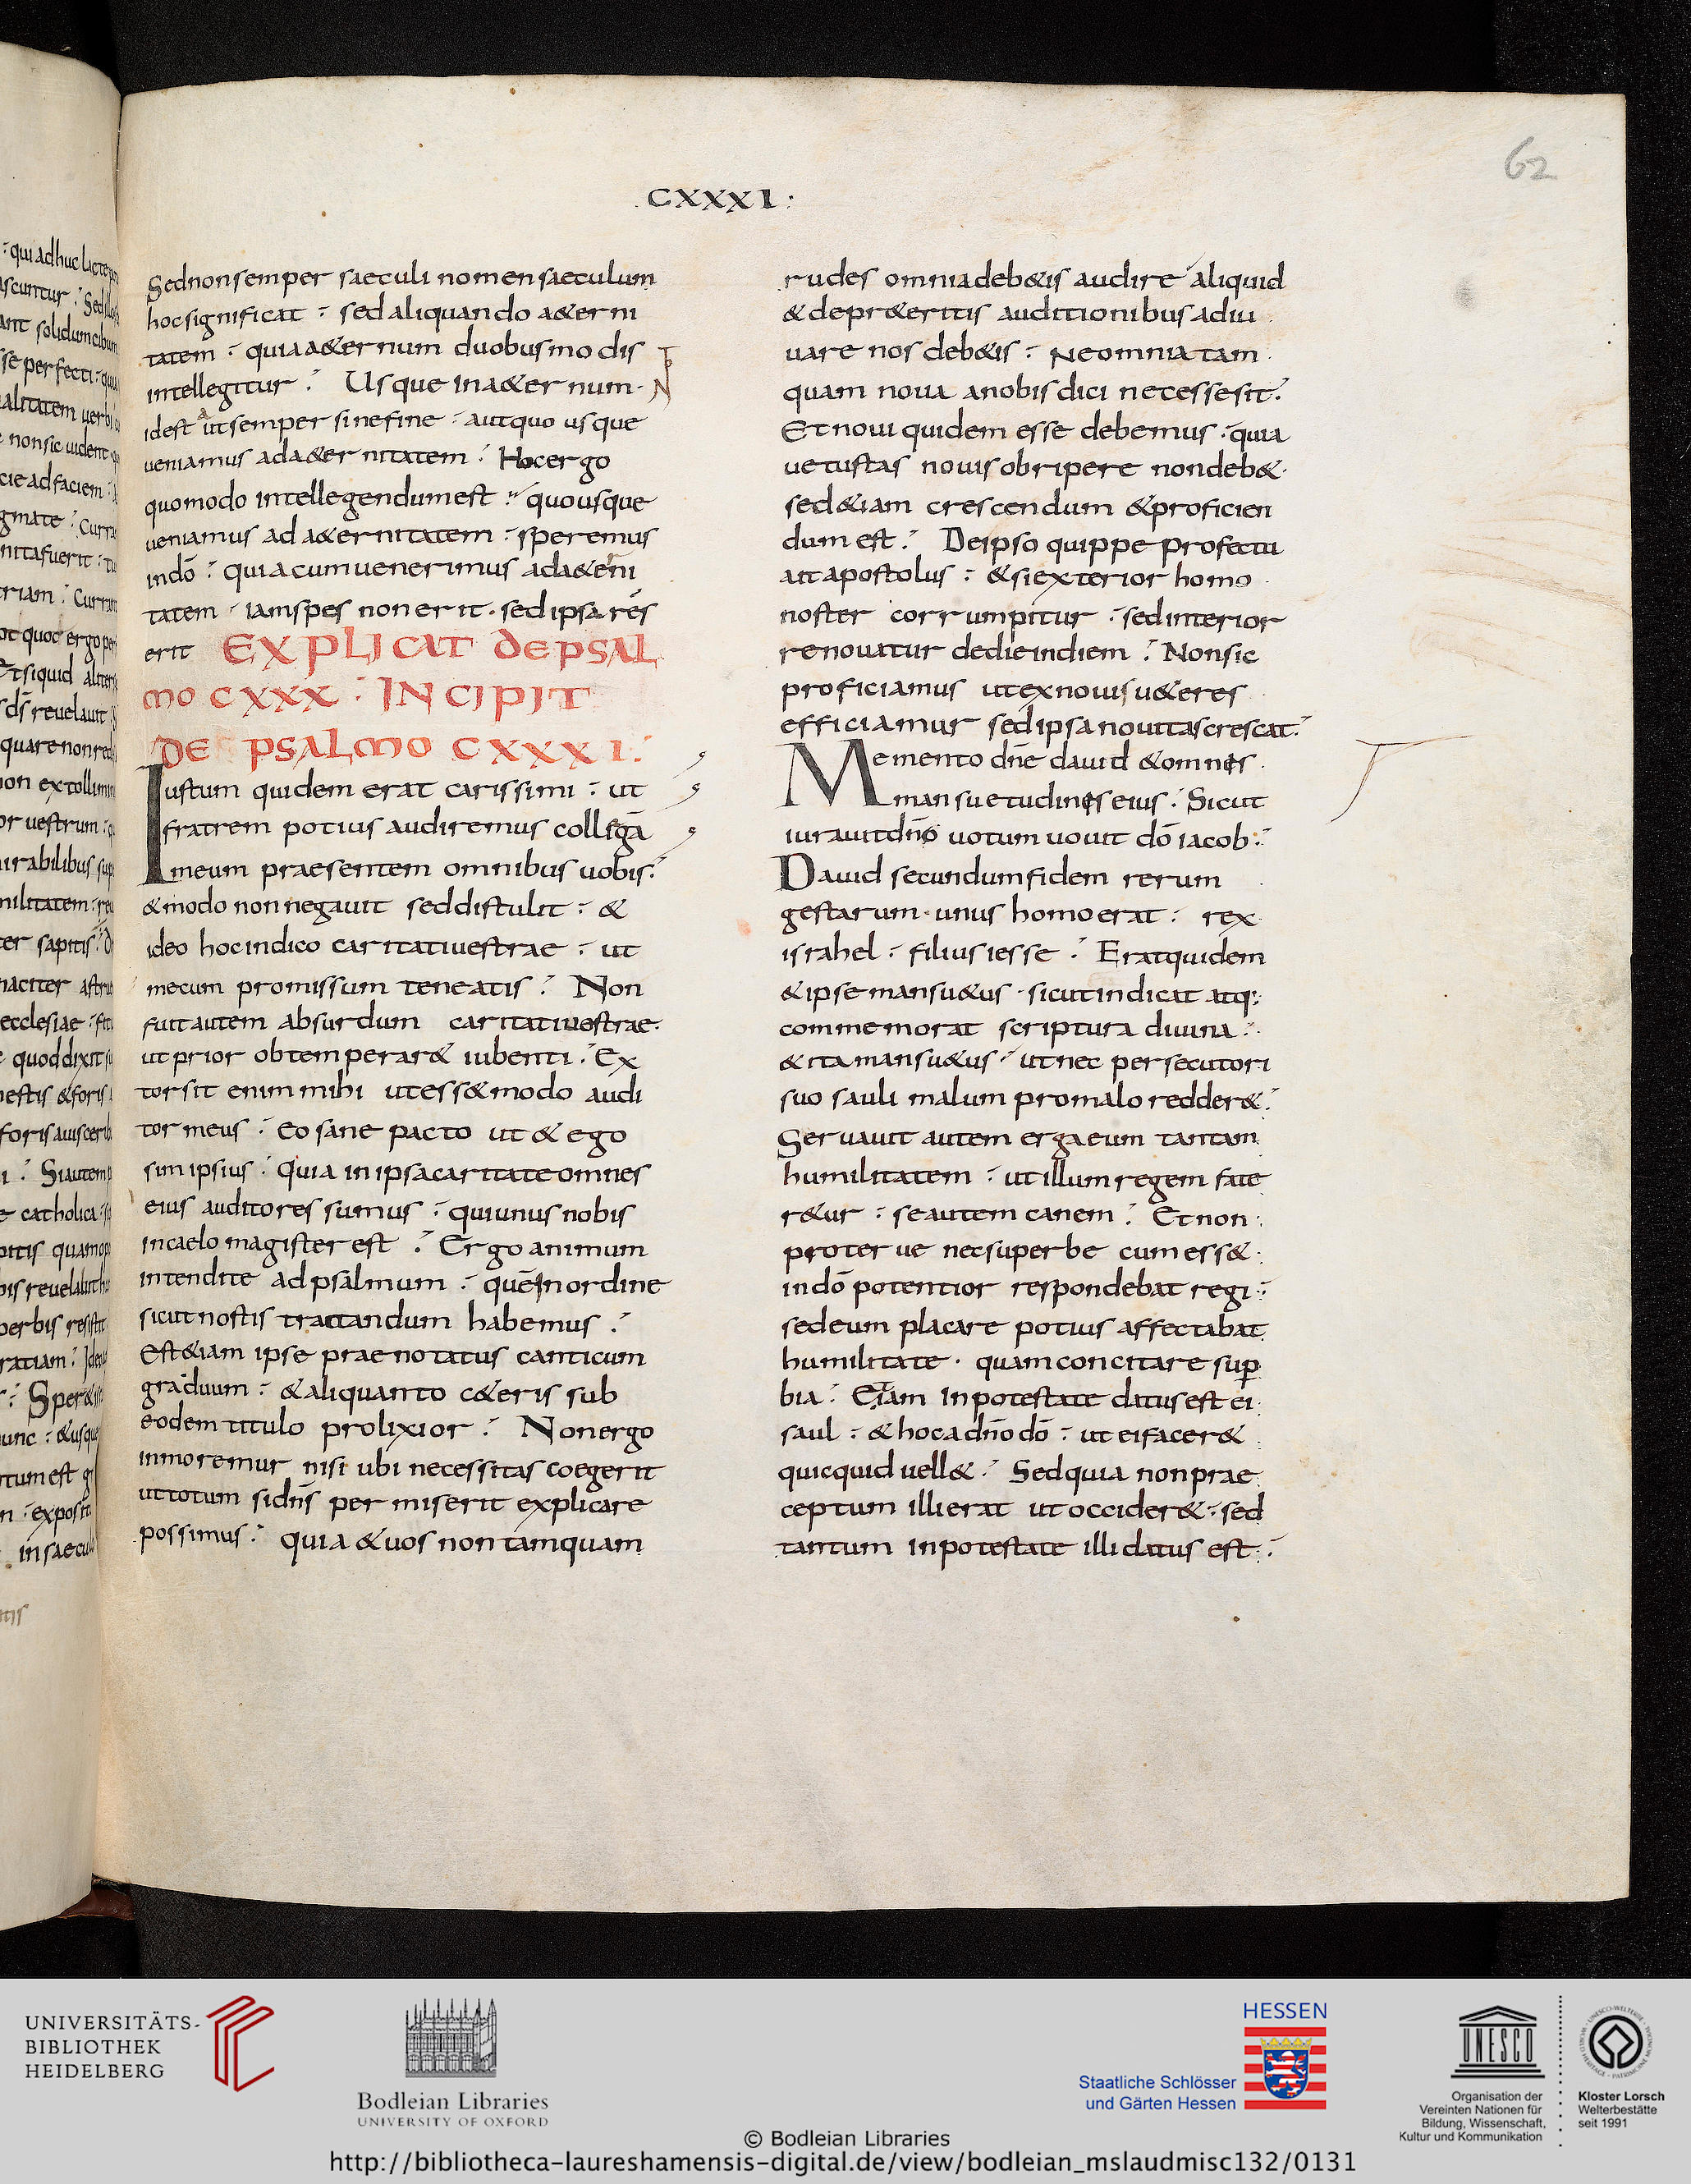 62
.CXXXI:
Sed non semper saeculi nomen saeculum
hoc significat : sed aliquando a&erni
tatem : quia a&ernum duobus modis
intellegitur : Usque in a&ernum ·
id est ut semper sine fine : aut quo usque
ueniamus ad a&ernitatem : Hoc ergo
quomodo intellegendum est : quousque
ueniamus ad a&ernitatem : speremus
in dō : quia cum uenerimus ad a&erni
tatem · iam spes non erit · sed ipsa res
erit EXPLICAT DE PSAL
MO CXXX : INCIPIT
DE PSALMO CXXXI :
Iustum quidem erat carissimi : ut
fratrem potius audiremus collegā
meum praesentem omnibus uobis :
& modo non negauit sed distulit : &
ideo hoc indico caritati uestrae : ut
mecum promissum teneatis : Non
fuit autem absurdum caritati uestrae ·
ut prior obtemperar& iubenti : Ex
torsit enim mihi ut ess& modo audi
tor meus : eo sane pacto ut & ego
sim ipsius : Quia in ipsa caritate omnes
eius auditores sumus : qui unus nobis
in caelo magister est : Ergo animum
intendite ad psalmum : quē in ordine
sicut nostis tractandum habemus :
Est &iam ipse praenotatus canticum
graduum : & aliquanto c&eris sub
eodem titulo prolixior : Non ergo
inmoremur nisi ubi necessitas coegerit
ut totum si dn̄s permiserit explicare
possimus : quia & uos non tamquam
rudes omnia deb&is audire aliquid
& de pr&eritis auditionibus adiu
uare nos deb&is : Ne omnia tam
quam noua a nobis dici necesse sit :
Et noui quidem esse debemus : quia
uetustas nouis obripere non deb& ·
sed &iam crescendum & proficien
dum est : De ipso quippe profectu
ait apostolus : & si exterior homo
noster corrumpitur : sed interior
renouatur de die in diem : Non sic
proficiamus ut ex nouis u&eres
efficiamur sed ipsa nouitas crescat :
Memento dn̄e dauid & omnes
mansuetudines eius : Sicut
iurauit dn̄o uotum uouit dō iacob :
Dauid secundum fidem rerum
gestarum · unus homo erat : rex
israhel : filius iesse : Erat quidem
& ipse mansu&us · sicut indicat atq:
commemorat scriptura diuina :
& ita mansu&us : ut nec persecutori
suo sauli malum pro malo redder& :
Seruauit autem erga eum tantam
humilitatem : ut illum regem fate
r&ur : se autem canem : Et non
proterue nec superbe cum ess&
in dō potentior respondebat regi :
sed eum placare potius affectabat
humilitate · quam concitare sup̱
bia : Etiam in potestate datus est ei
saul : & hoc a dn̄o dō : ut ei facer&
quicquid uell& : Sed quia non prae
ceptum illi erat ut occider& : sed
tantum in potestate illi datus est :
UNIVERSITÄTS-
BIBLIOTHEK
HEIDELBERG
Bodleian Libraries
UNIVERSITY OF OXFORD
HESSEN
Staatliche Schlösser
und Gärten Hessen
UNESCO
Organisation der
Vereinten Nationen für
Bildung, Wissenschaft,
Kultur und Kommunikation
Kloster Lorsch
Welterbestätte
seit 1991
© Bodleian Libraries
http://bibliotheca-laureshamensis-digital.de/view/bodleian_mslaudmisc132/0131